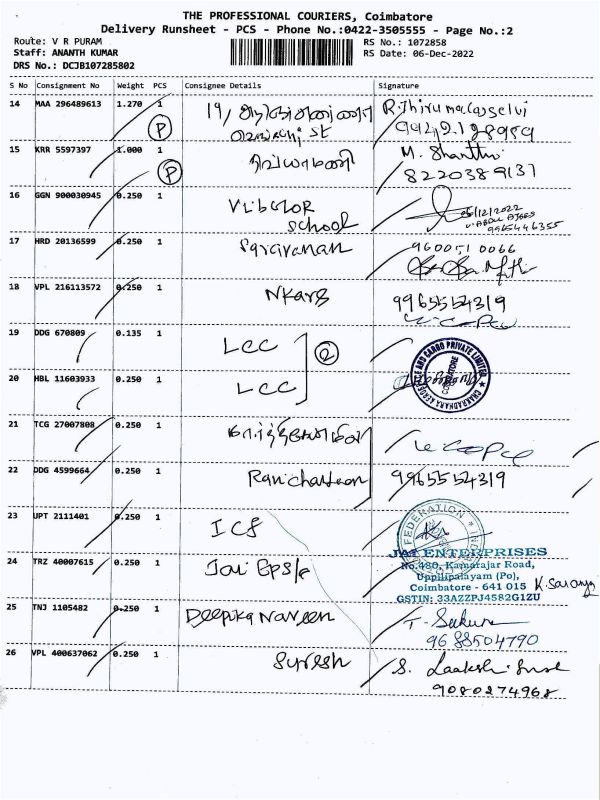 THE PROFESSIONAL COURIERS, Coimbatore
Delivery Runsheet - PCS - Phone No.:0422-3505555 - Page No.:2
Route: V R PURAM
RS No.: 1072858
Staff: ANANTH KUMAR
RS Date: 06-Dec-2022
DRS No.: DCJB107285802
S No Consignment No Weight PCS Consignee Details Signature
14 MAA 296489613 1.270 1 19/ R.Thirumalaiselvi
P St 99429128959
15 KRR 5597397 1.000 1 M. Shanthi
P 8220389137
16 GGN 900030945 0.250 1 05/12/2022
School 9965446355
17 HRD 20136599 0.250 1 Saravanan 960051 0066
18 VPL 216113572 0.250 1 9965554319
19 DDG 670809 0.135 1 LCC 2
20 HBL 11603933 0.250 1 LCC
21 TCG 27007808 0.250 1
22 DDG 4599664 0.250 1 9965554319
23 UPT 2111401 0.250 1 ICS
FEDERATION
JAY ENTERPRISES
24 TRZ 40007615 0.250 1 Jai No.480, Kamarajar Road,
Uppilipalayam (Po),
Coimbatore - 641 015 K.Saranya
GSTIN: 33AZZPJ4582G1ZU
25 TNJ 1105482 0.250 1 Deepika Naveen
9688504790
26 VPL 400637062 0.250 1 Suresh S.
9080274968